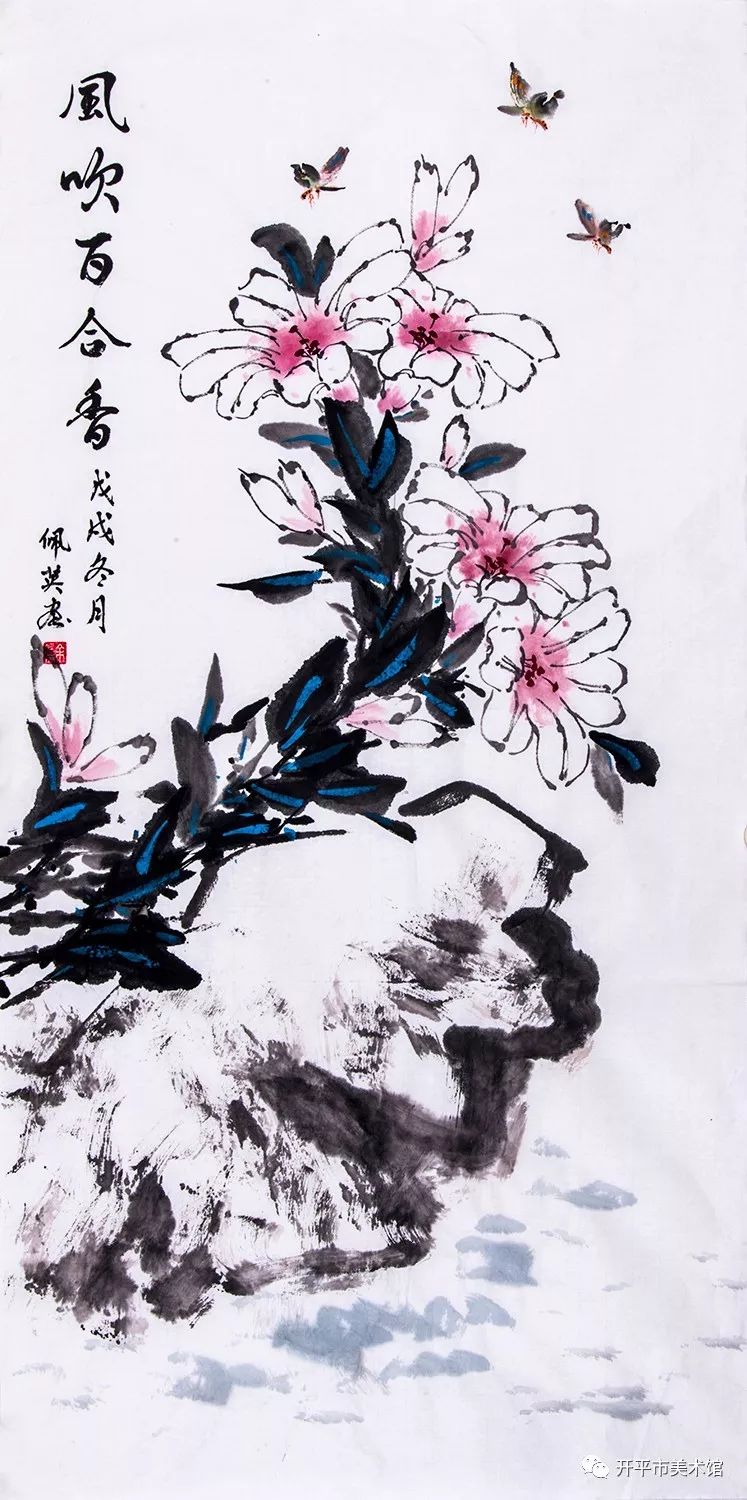 風吹百合香
戊戌冬月
佩英画
开平市美术馆